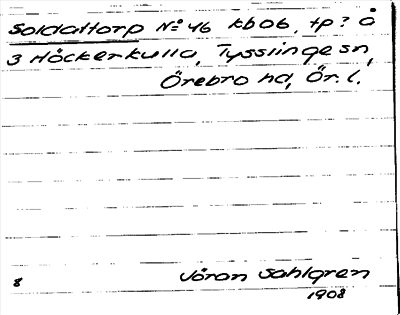 Soldattorp No 46 kb06, tp? å
3 Höckerkulla, Tysslinge sn,
Örebro hd, Ör. l.
Jöran Sahlgren
8
1908